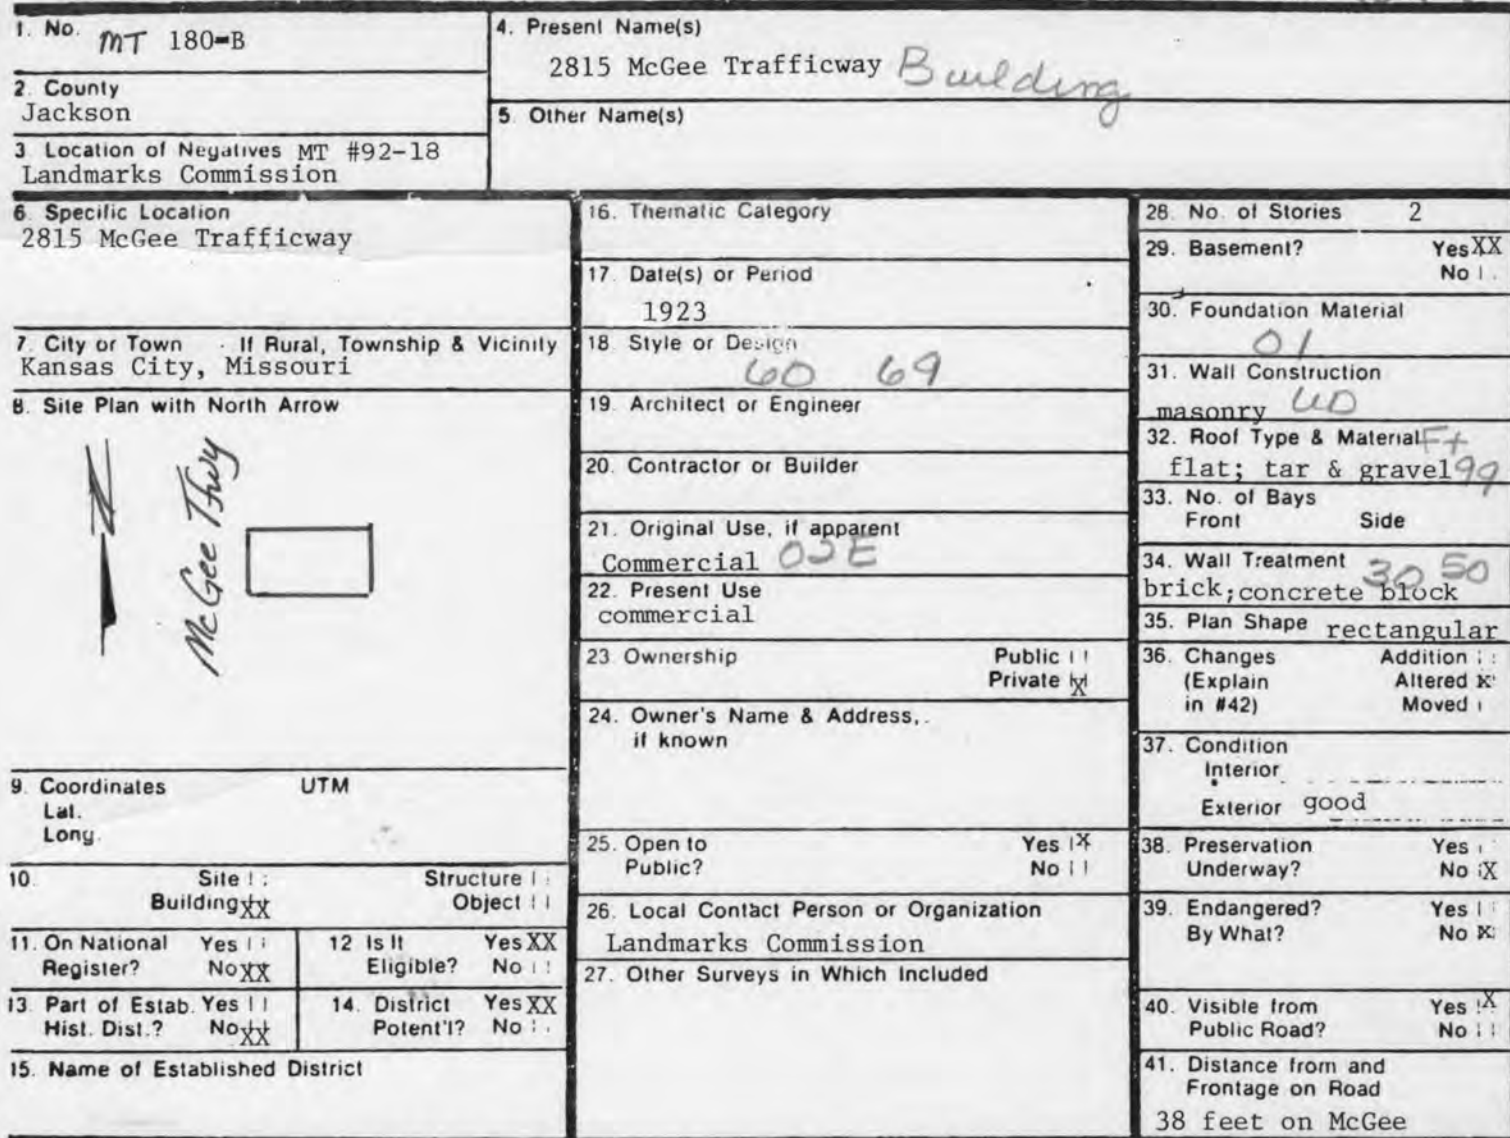 1. No. MT 180-B
2. County
Jackson
3. Location of Negatives MT #92-18
Landmarks Commission
4. Present Name(s)
2815 McGee Trafficway Building
5. Other Name(s)
6. Specific Location
2815 McGee Trafficway
7. City or Town If Rural, Township & Vicinity
Kansas City, Missouri
8. Site Plan with North Arrow
N
McGee Tfwy
9. Coordinates UTM
Lat.
Long.
10. Site Structure
Building XX Object
11. On National Yes
Register? No XX
12 Is It Yes XX
Eligible? No
13. Part of Estab. Yes
Hist. Dist.? No XX
14. District Yes XX
Potent'l? No
15. Name of Established District
16. Thematic Category
17. Date(s) or Period
1923
18. Style or Design
60 69
19. Architect or Engineer
20. Contractor or Builder
21. Original Use, if apparent
Commercial 02E
22. Present Use
commercial
23. Ownership Public
Private X
24. Owner's Name & Address,
if known
25. Open to Yes X
Public? No
26. Local Contact Person or Organization
Landmarks Commission
27. Other Surveys in Which Included
28. No. of Stories 2
29. Basement? Yes XX
No
30. Foundation Material
01
31. Wall Construction
masonry UD
32. Roof Type & Material Ft
flat; tar & gravel 99
33. No. of Bays
Front Side
34. Wall Treatment 30 50
brick; concrete block
35. Plan Shape rectangular
36. Changes Addition
(Explain Altered X
in #42) Moved
37. Condition
Interior
Exterior good
38. Preservation Yes
Underway? No X
39. Endangered? Yes
By What? No X
40. Visible from Yes X
Public Road? No
41. Distance from and
Frontage on Road
38 feet on McGee